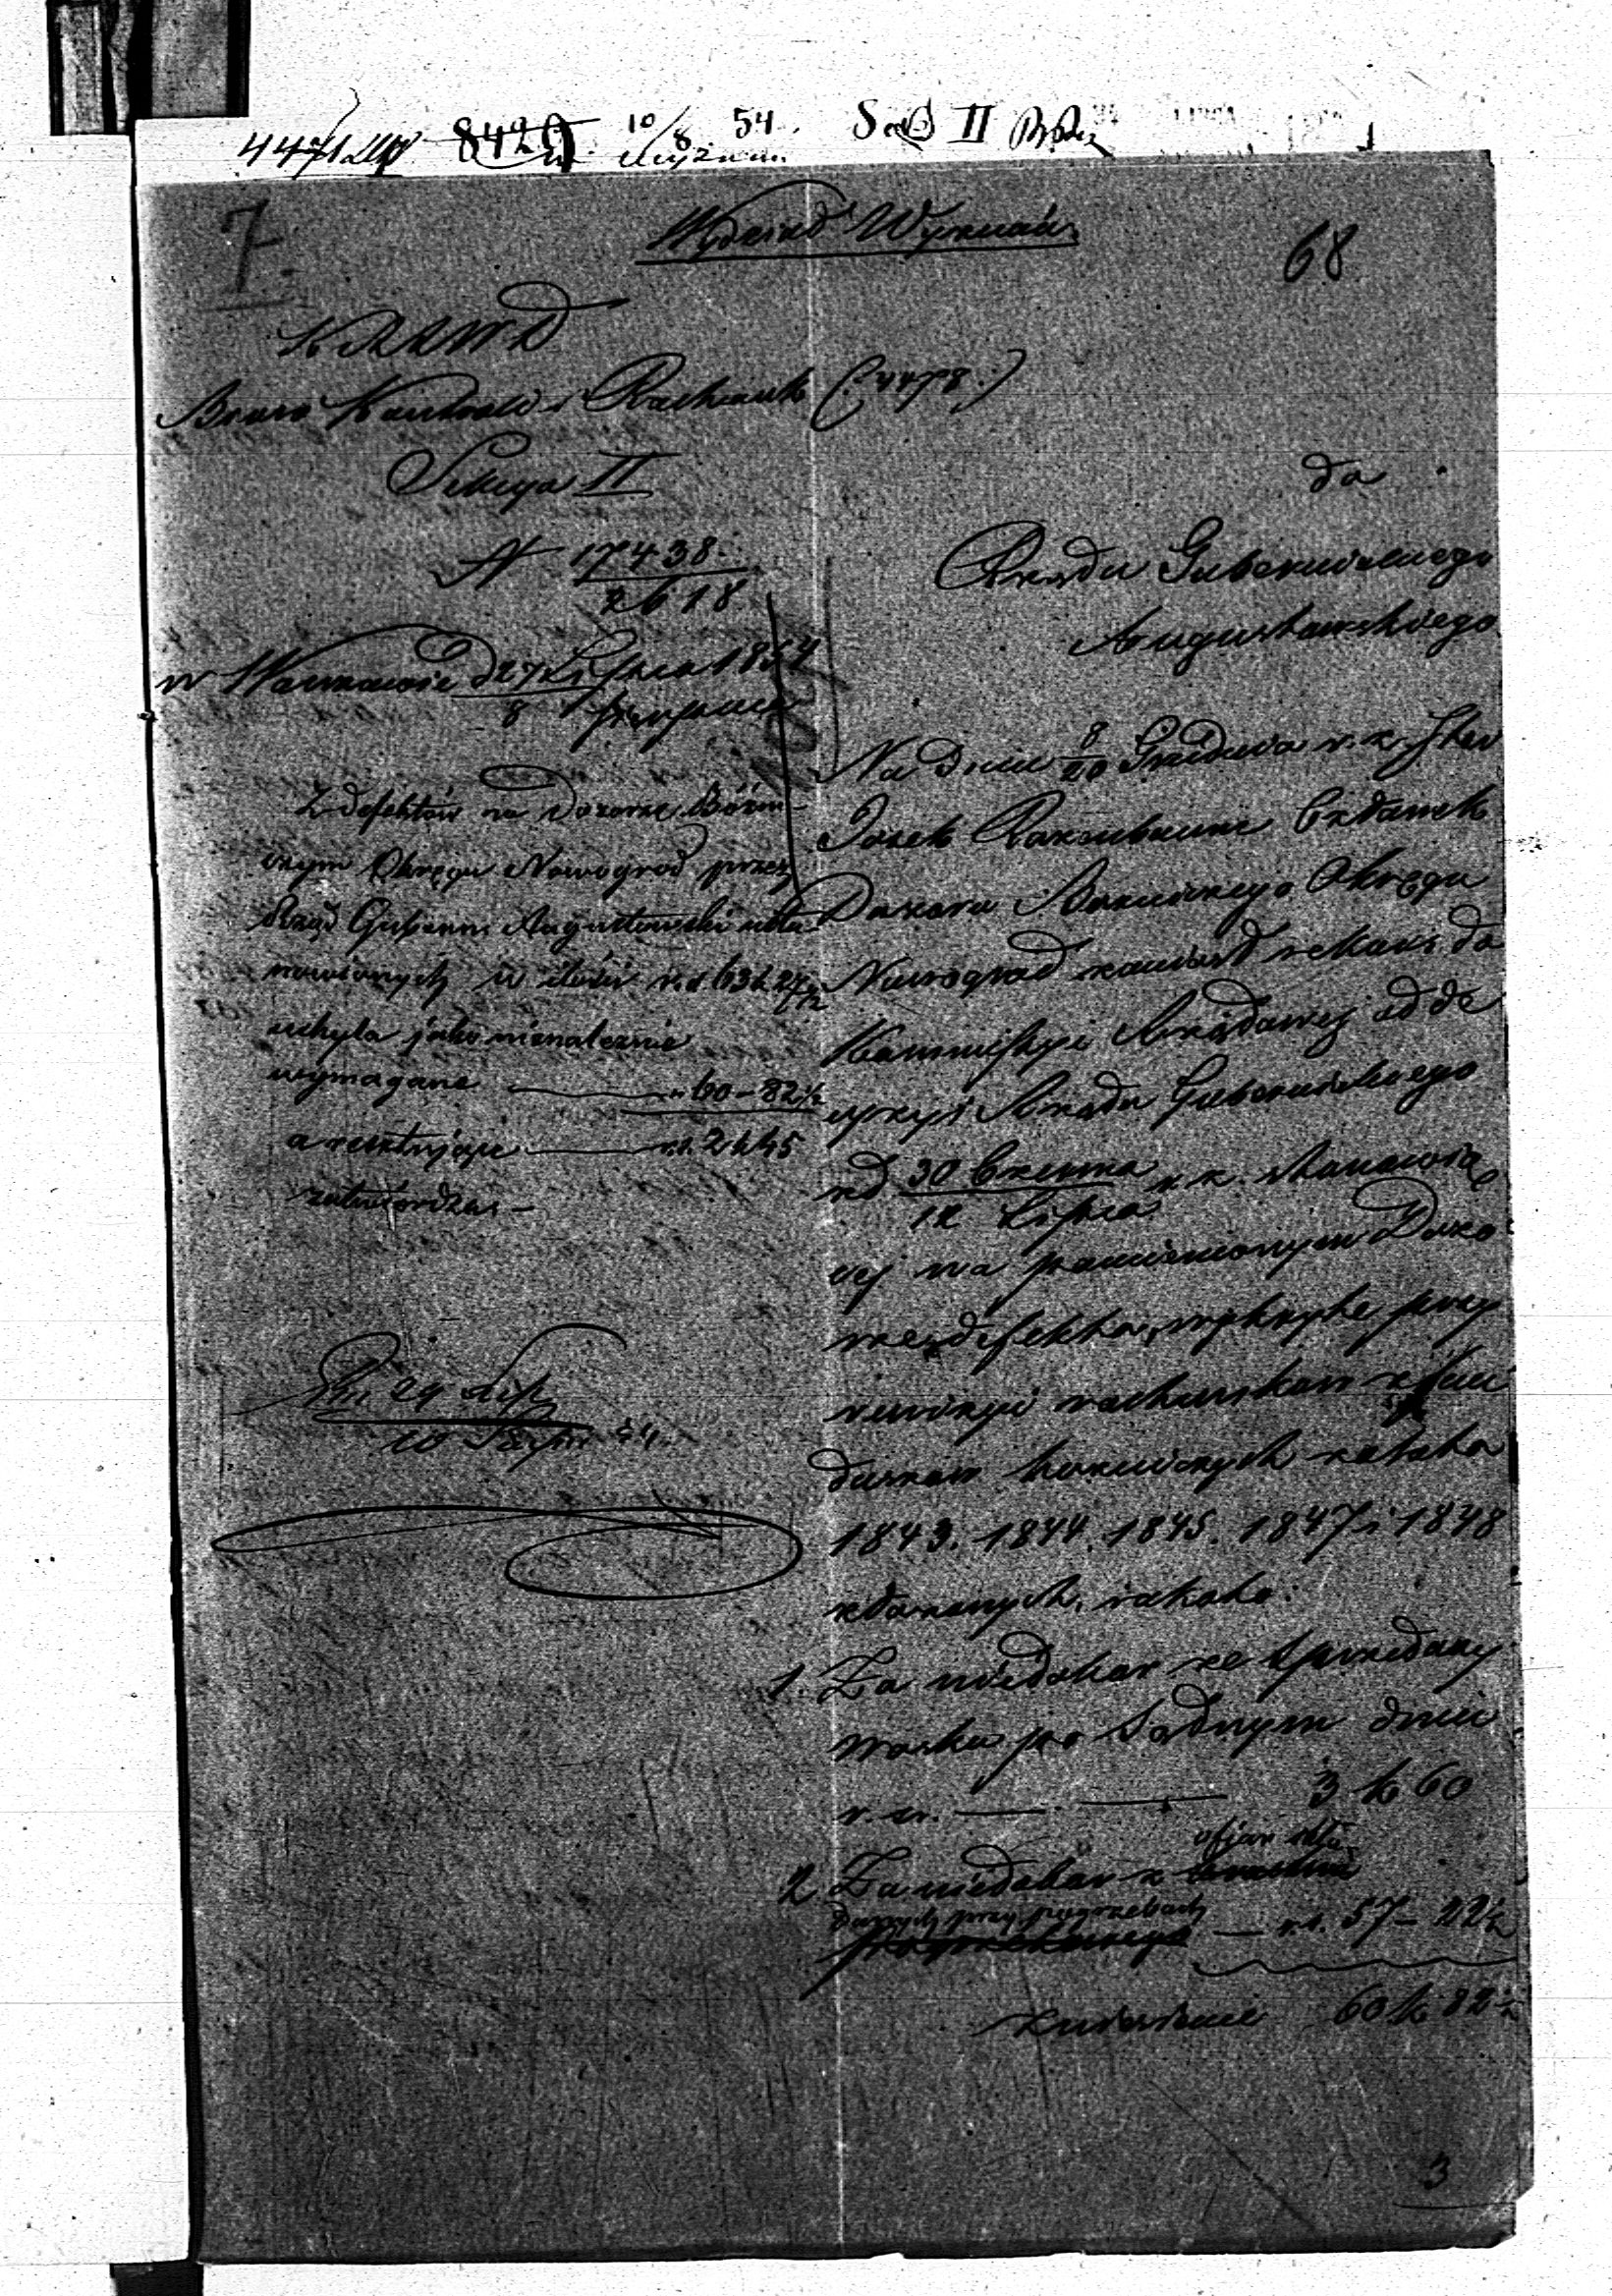 8429 10/8 54. II
7.
Wydział Wyznań
68
K R S W D
Biuro Kontroli i Rachunk (:4478:)
Sekcya II
N 17438
2618
w Warszawie d 27 Lipca 1854
8 Sierpnia
Z defektów na Dozorze Bóżni-
cznym Okręgu Nowogrod przez
Rząd Gubern. Augustowski usta-
nowionych w ilości r.s. 63 k 27½
uchyla jako nienależnie
wymagane — " 60 – 82½
a resztujące — r.s. 2 k 45
zatwierdza. –
29 Lip
10 Sierp 54.
do
Rządu Gubernialnego
Augustowskiego
Na dniu 8/20 Grudnia r. z.
Josek Rozenbaum Członek
Dozoru Bożniczego Okręgu
Nowogrod zaniósł rekurs do
Kommissyi Rządowej od de
cyzyi Rządu Gubernialnego
z d 30 Czerwca r. z. stanowią
12 Lipca
cej na pomienionym Dozo
rze defekta, wykryte przy
rewizyi rachunków z fun
duszów bożniczych za lata
1843. 1844. 1845. 1847 i 1848
zdawanych, jakoto:
1. Za niedobór ze sprzedaży
wosku po Sądnym dniu
r. sr. — 3 k 60
2 Za niedobór z ofiar skła
danych przy pogrzebach — r.s. 57 – 22½
60 k 82½
3